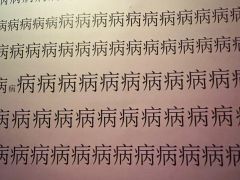 病病病病病病病病病病病病病病
病病病病病病病病病病病病病
病病病病病病病病病病病病病
病病病病病病病病病病病病病
病病病病病病病病病病病病
病病病病病病病病病病病病